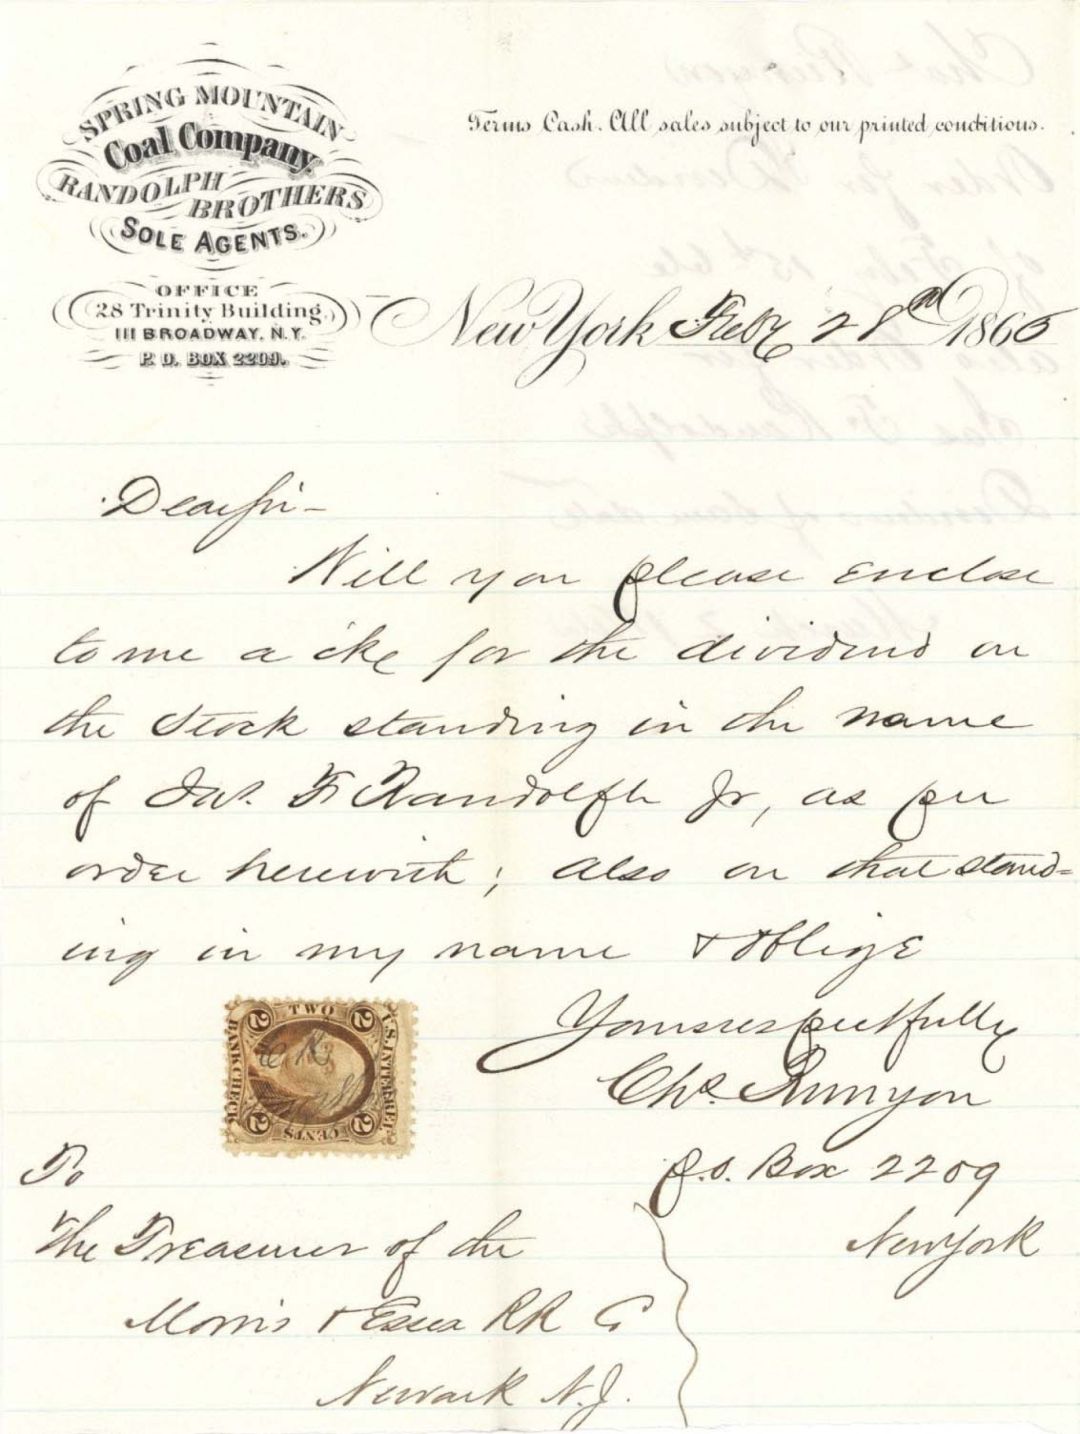 SPRING MOUNTAIN
Coal Company
RANDOLPH BROTHERS
SOLE AGENTS.
OFFICE
28 Trinity Building
111 BROADWAY, N.Y.
P. O. BOX 2209.
Terms Cash. All sales subject to our printed conditions.
New York Feby 28th 1865
Dear Sir -
Will you please enclose
to me a cke for the dividend on
the Stock standing in the name
of Jas. F. Randolph Jr, as per
order herewith; also on that stand=
ing in my name & oblige
Yours respectfully
Chs. Runyon
P.O. Box 2209
New York
TWO
2 2
U.S. INTER. REV.
BANK CHECK
2 2
CENTS
To
The Treasurer of the
Morris & Essex RR Co
Newark N.J.